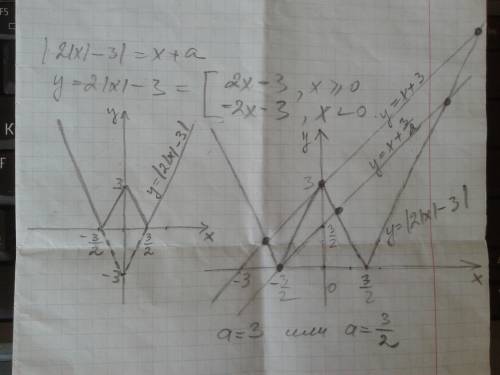 |2|x|-3| = x+a
y = 2|x|-3 = [ 2x-3, x⩾0
-2x-3, x<0
y
3
-3/2
3/2
x
-3
y=|2|x|-3|
y
y=x+3
y=x+3/2
3
3/2
y=|2|x|-3|
-3
-3/2
0
3/2
x
a=3 или a=3/2